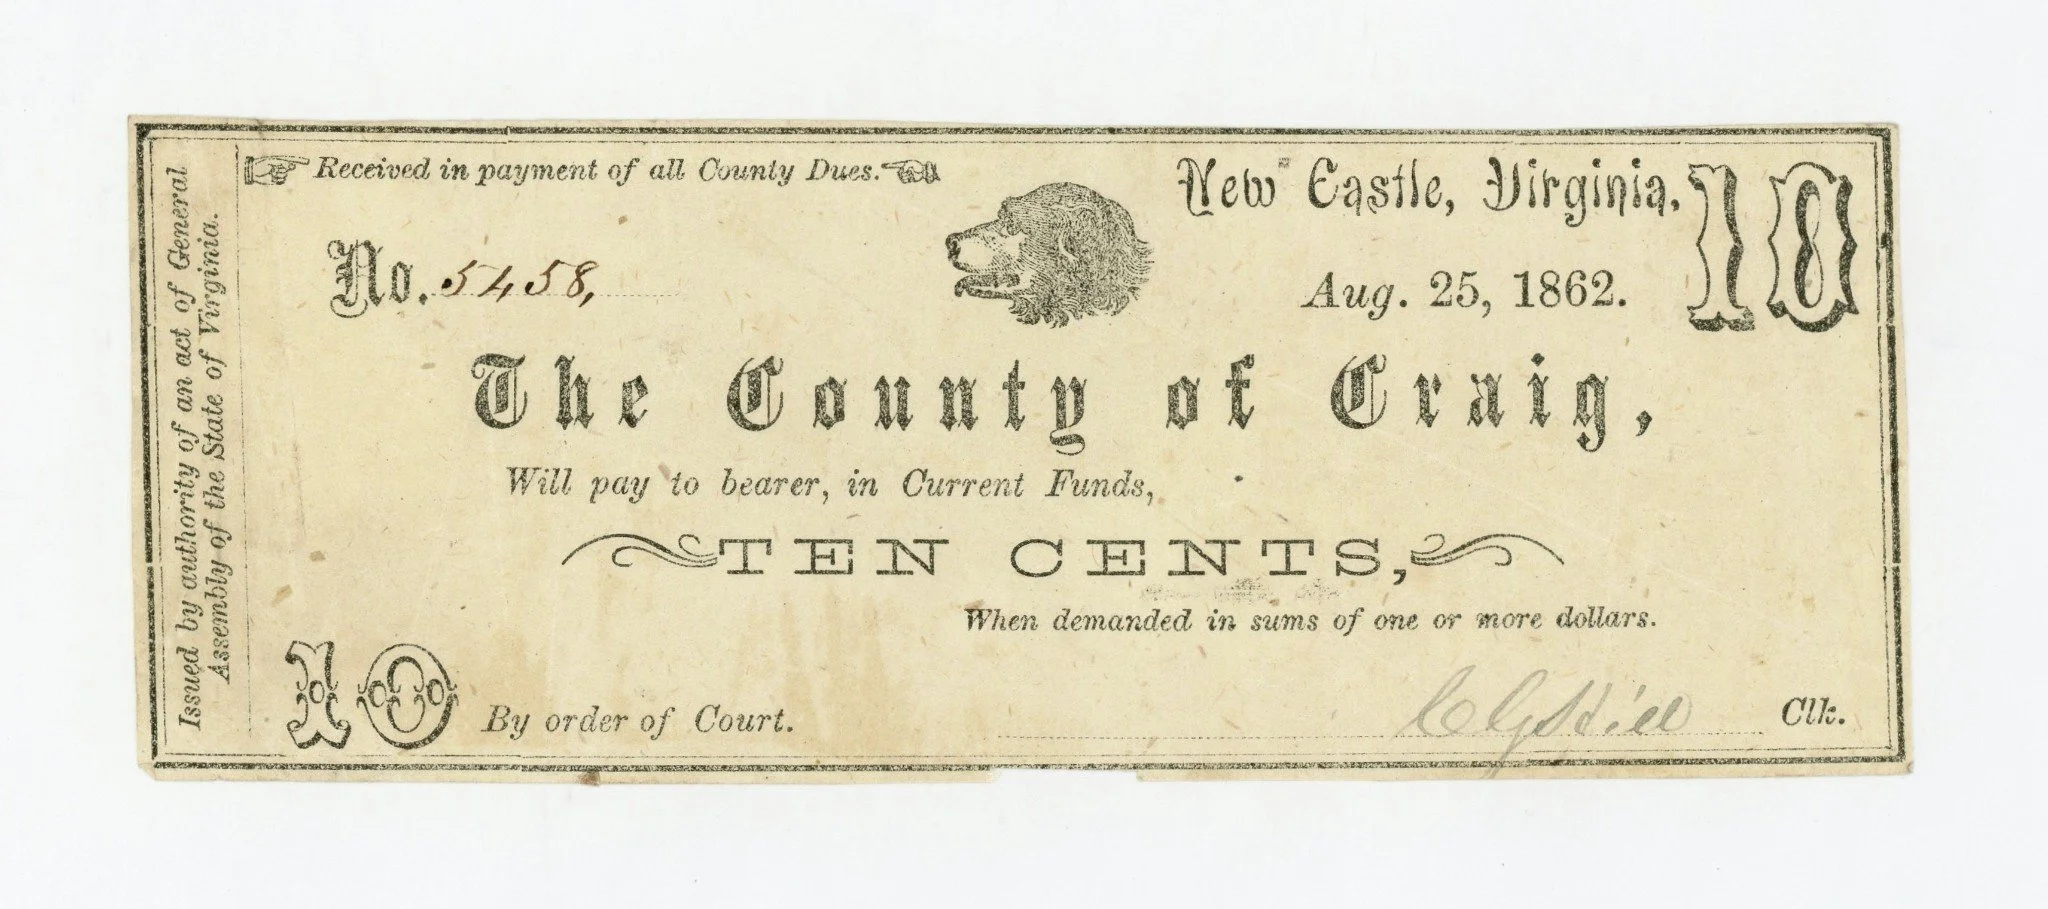 Issued by authority of an act of General
Assembly of the State of Virginia.
Received in payment of all County Dues.
New Castle, Virginia,
10
No. 5458,
Aug. 25, 1862.
The County of Craig,
Will pay to bearer, in Current Funds,
TEN CENTS,
When demanded in sums of one or more dollars.
10
By order of Court.
Clk.